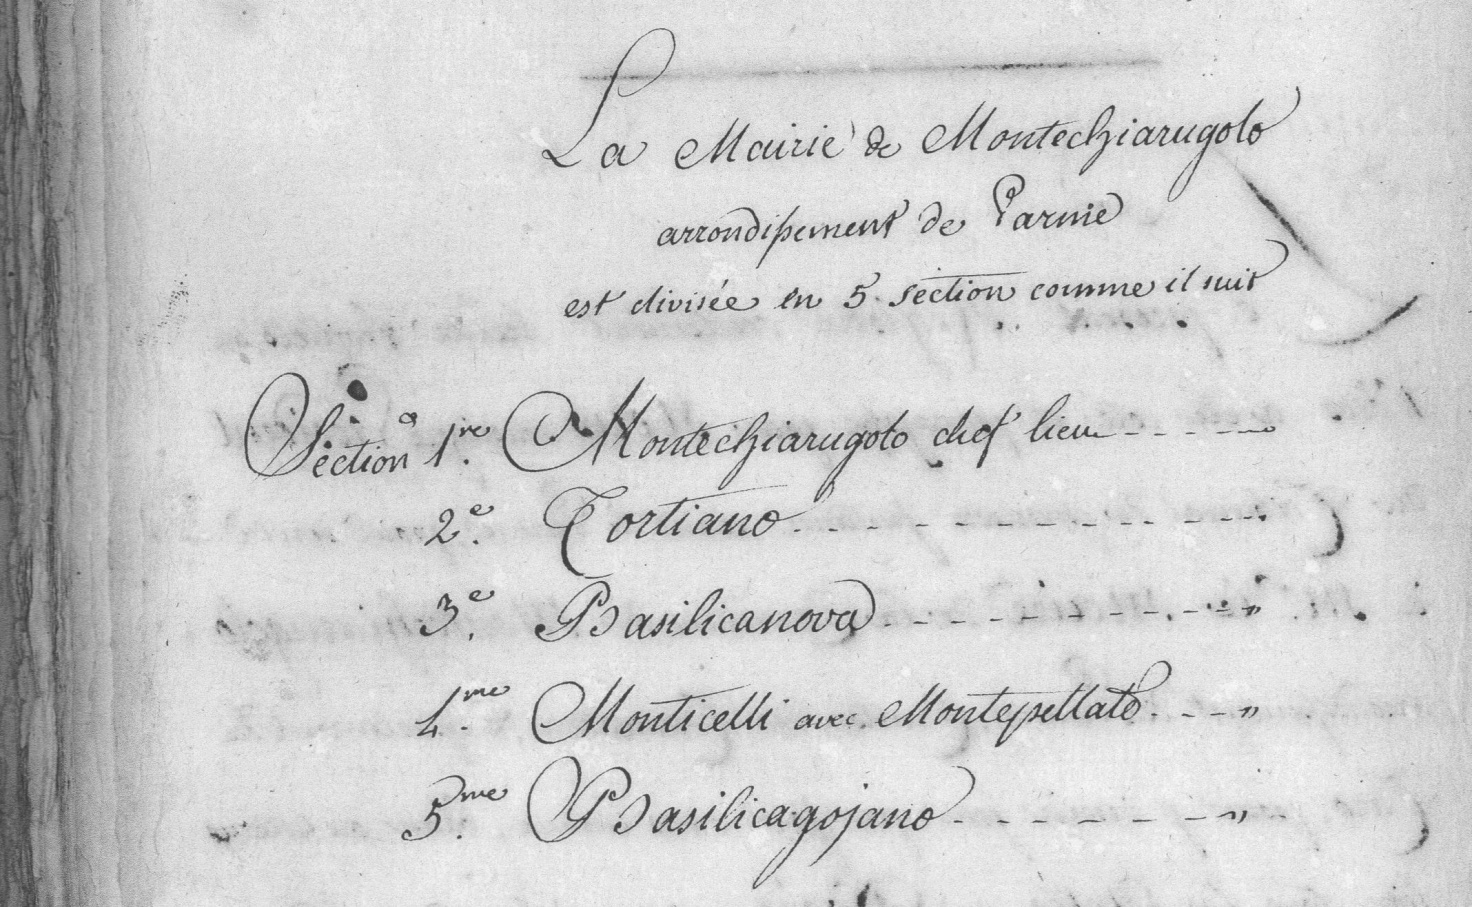 La Mairie de Montechiarugolo
arrondissement de Parme
est divisée en 5 section comme il suit
Section 1.re Montechiarugolo chef lieu - - - - -
2.e Tortiano - - - - - - - - - - -
3.e Basilicanova - - - - - - - - - "
4.me Monticelli avec Montepellato - - - "
5.me Basilicagojano - - - - - - - "